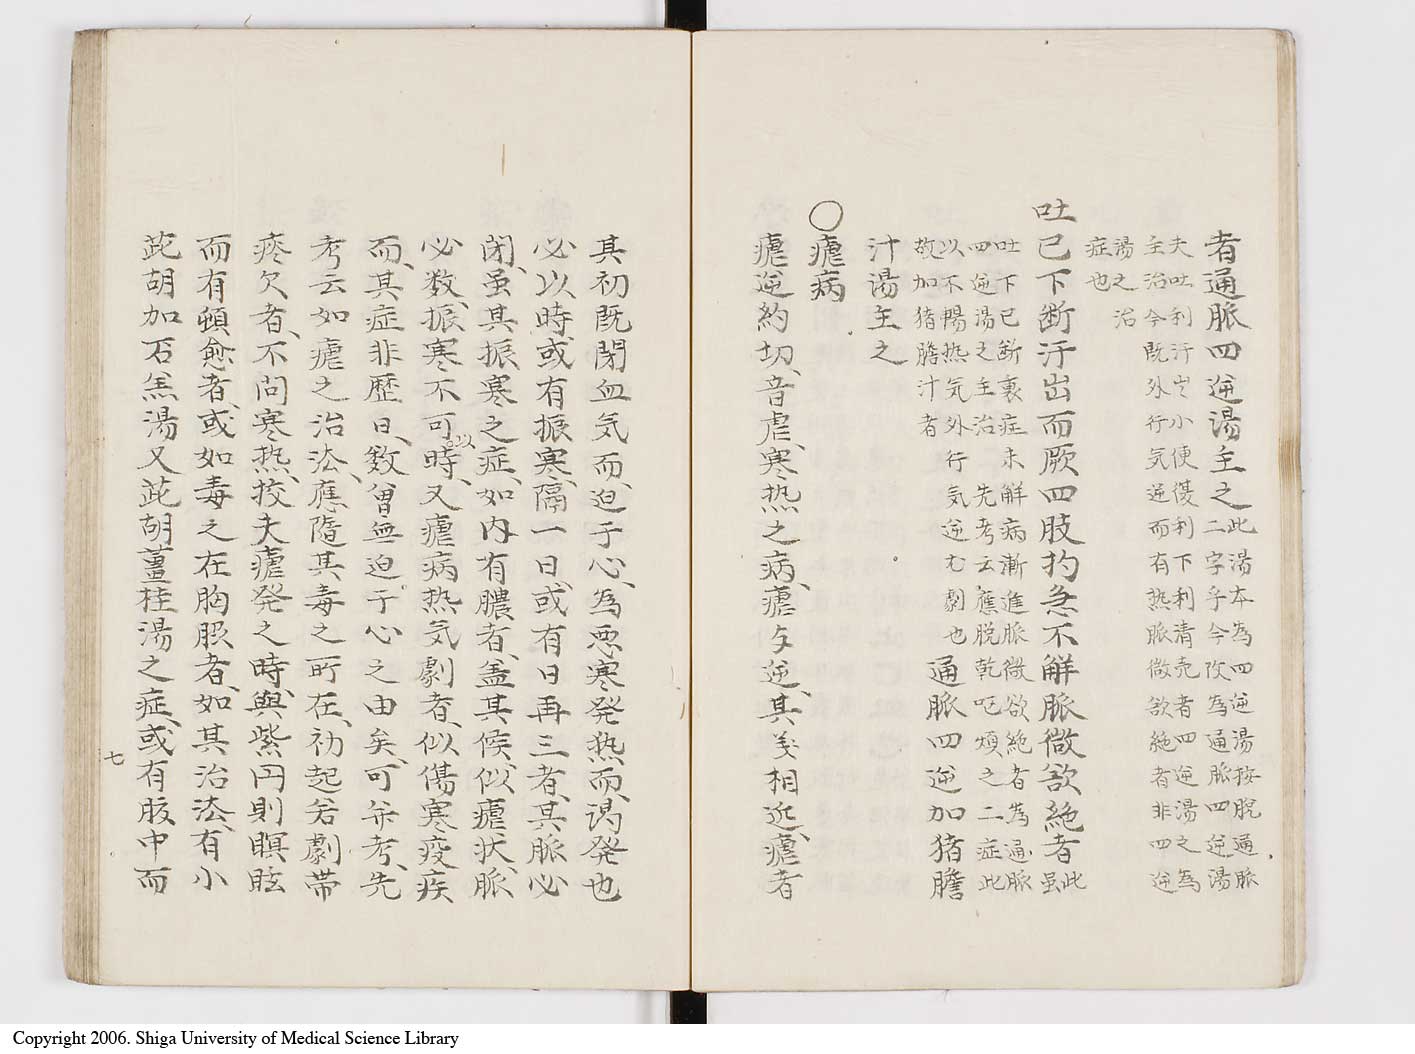 者通脈四逆湯主之此湯本為四逆湯按脱通脈
二字乎今改為通脈四逆湯
夫吐利汗出小便復利下利清壳者四逆湯之為
主治今既外行気逆而有熱脈微欲絶者非四逆
湯之治
症也
吐已下断汗出而厥四肢拘急不解脈微欲絶者此
虽
吐下已断裏症未解病漸進脈微欲絶者為通脈
四逆湯之主治先考云應脱乾呕煩之二症此
以不暢热気外行気逆尤劇也通脈四逆加猪膽
故加猪膽汁者
汁湯主之
○瘧病
瘧逆約切音虐寒热之病瘧与逆其义相近瘧者
其初既閉血気而迫于心為悪寒発热而渇発也
必以時或有振寒隔一日或有日再三者其脈必
閉虽其振寒之症如内有膿者盖其候似瘧状脈
必数振寒不可以時又瘧病热気劇者似傷寒疫疾
而其症非歴日数曽無迫于心之由矣可并考先
考云如瘧之治法應隨其毒之所在初起若劇帯
疼欠者不问寒热按夫瘧発之時與紫円則瞑眩
而有頓愈者或如毒之在胸腹者如其治法有小
茈胡加石羔湯又茈胡薑桂湯之症或有腹中而
七
Copyright 2006. Shiga University of Medical Science Library